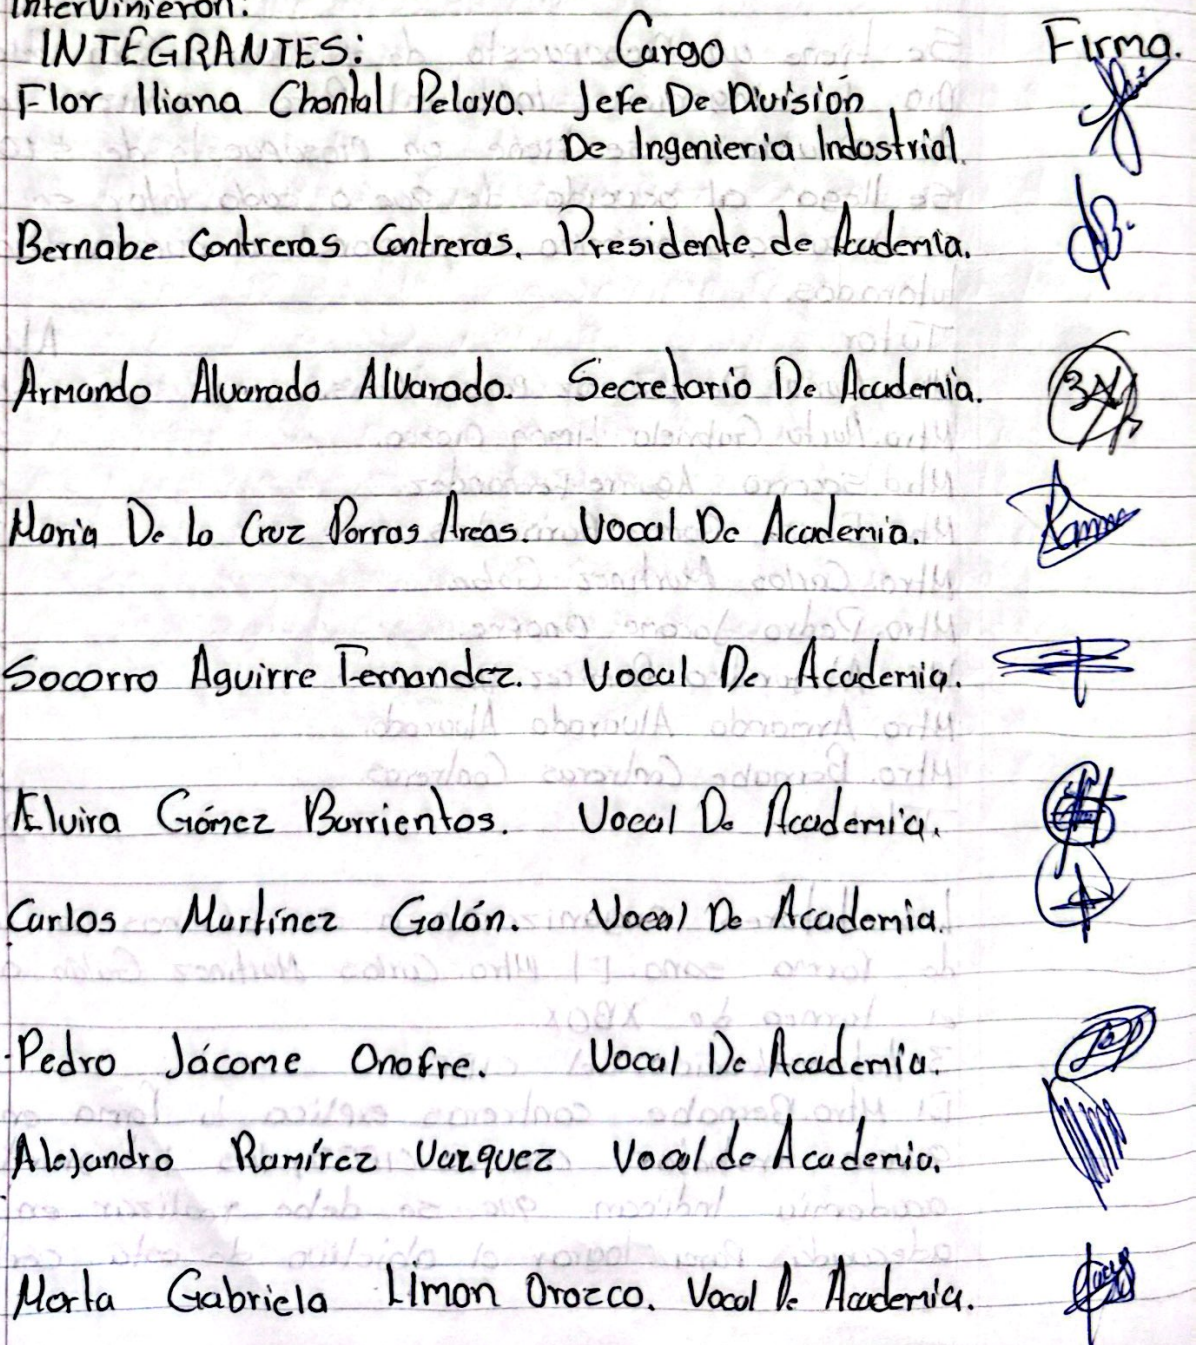 Intervinieron:
INTEGRANTES: Cargo Firma.
Flor Iliana Chontal Pelayo. Jefe De División
De Ingenieria Industrial.
Bernabe Contreras Contreras. Presidente de Academia.
Armando Alvarado Alvarado. Secretario De Academia.
Maria De la Cruz Porras Areas. Vocal De Academia.
Socorro Aguirre Fernandez. Vocal De Academia.
Elvira Gómez Barrientos. Vocal De Academia.
Carlos Martínez Galán. Vocal De Academia.
Pedro Jácome Onofre. Vocal De Academia.
Alejandro Ramírez Vazquez Vocal de Academia.
Marta Gabriela Limon Orozco. Vocal De Academia.